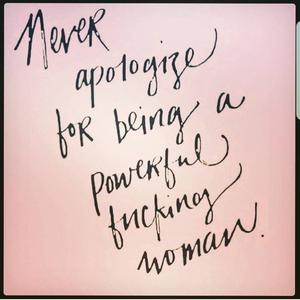 Never
apologize
for being a
powerful
fucking
woman.